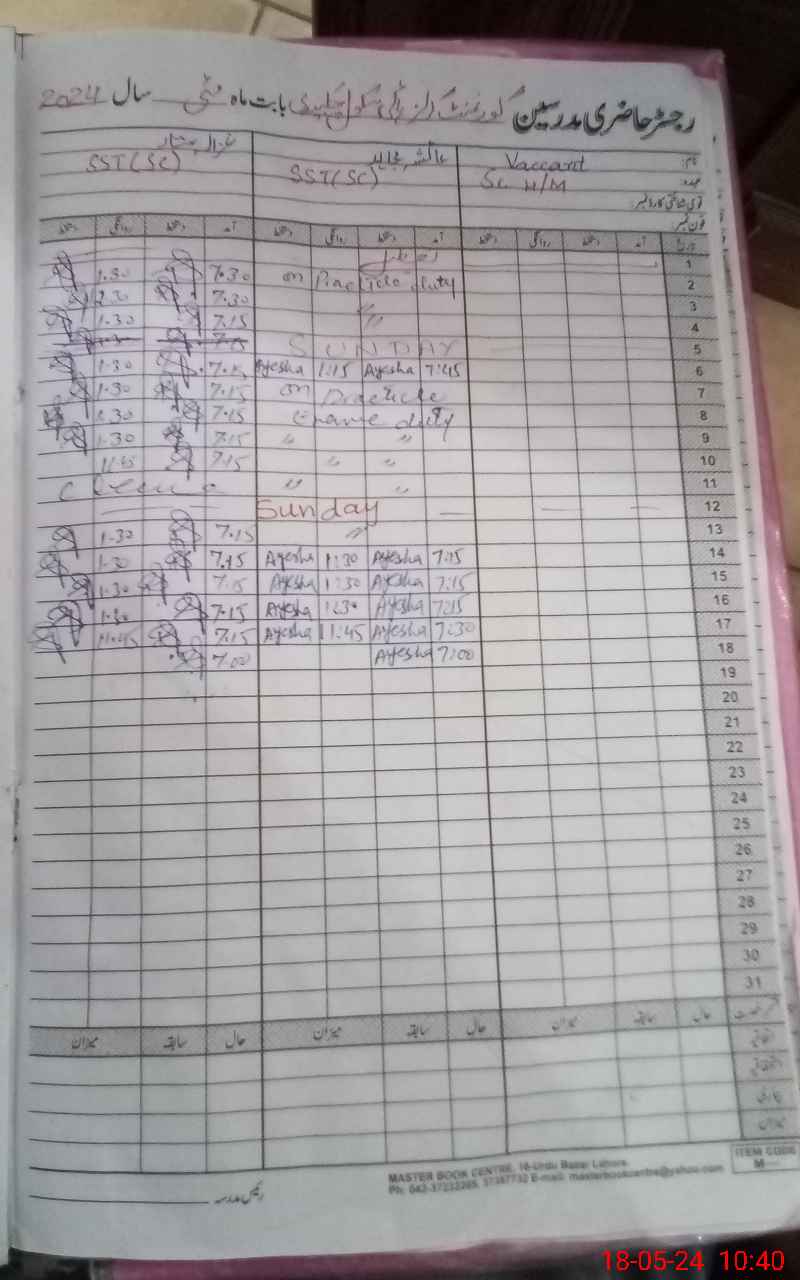 رجسٹر حاضری مدرسین گورنمنٹ گرلز ہائی سکول بابت ماہ مئی سال 2024
نام: Vaccant عائشہ مجاہد
عہدہ: Sc H/M SST(SC) SST(SC)
قومی شناختی کارڈ نمبر:
فون نمبر:
تاریخ آمد دستخط روانگی دستخط آمد دستخط روانگی دستخط آمد دستخط روانگی دستخط
1
2 on Practicle duty 7.30 1.30
3 〃 7.30 2.30
4 〃 7.15 1.30
5 SUNDAY 7.15 1.30
6 7:45 Ayesha 1:15 Ayesha 7.15 1.30
7 on Practicle 7.15 1.30
8 duty 7.15 1.30
9 〃 〃 7.15 1.30
10 〃 〃 7.15 11.45
11 〃 〃
12 Sunday
13 〃 7.15 1.30
14 7:15 Ayesha 1:30 Ayesha 7.15 1.30
15 7:15 Ayesha 1:30 Ayesha 7.15 1.30
16 7:15 Ayesha 1:30 Ayesha 7.15 1.30
17 7:30 Ayesha 11:45 Ayesha 7.15 11.45
18 7:00 Ayesha 7.00
19
20
21
22
23
24
25
26
27
28
29
30
31
حال سابقہ میزان حال سابقہ میزان حال سابقہ میزان
اتفاقیہ
بیماری
میزان
رئیس مدرسہ
MASTER BOOK CENTRE, 16-Urdu Bazar Lahore.
Ph: 042-37232265, 37357732 E-mail: masterbookcentre@yahoo.com
ITEM CODE
M
18-05-24 10:40